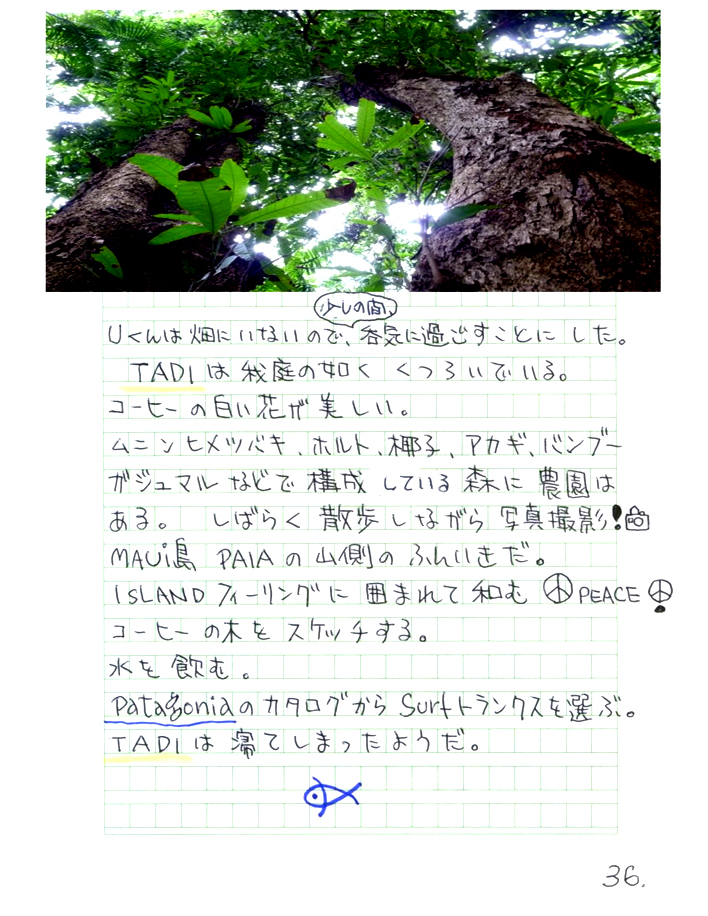 少しの間、
Uくんは畑にいないので、呑気に過ごすことにした。
TADIは我庭の如くくつろいでいる。
コーヒーの白い花が美しい。
ムニンヒメツバキ、ホルト、椰子、アカギ、バンブー
ガジュマルなどで構成している森に農園は
ある。 しばらく散歩しながら写真撮影!
MAUi島 PAIAの山側のふんいきだ。
ISLANDフィーリングに囲まれて和む PEACE
コーヒーの木をスケッチする。
水を飲む。
PatagoniaのカタログからSurfトランクスを選ぶ。
TADIは てしまったようだ。
36.